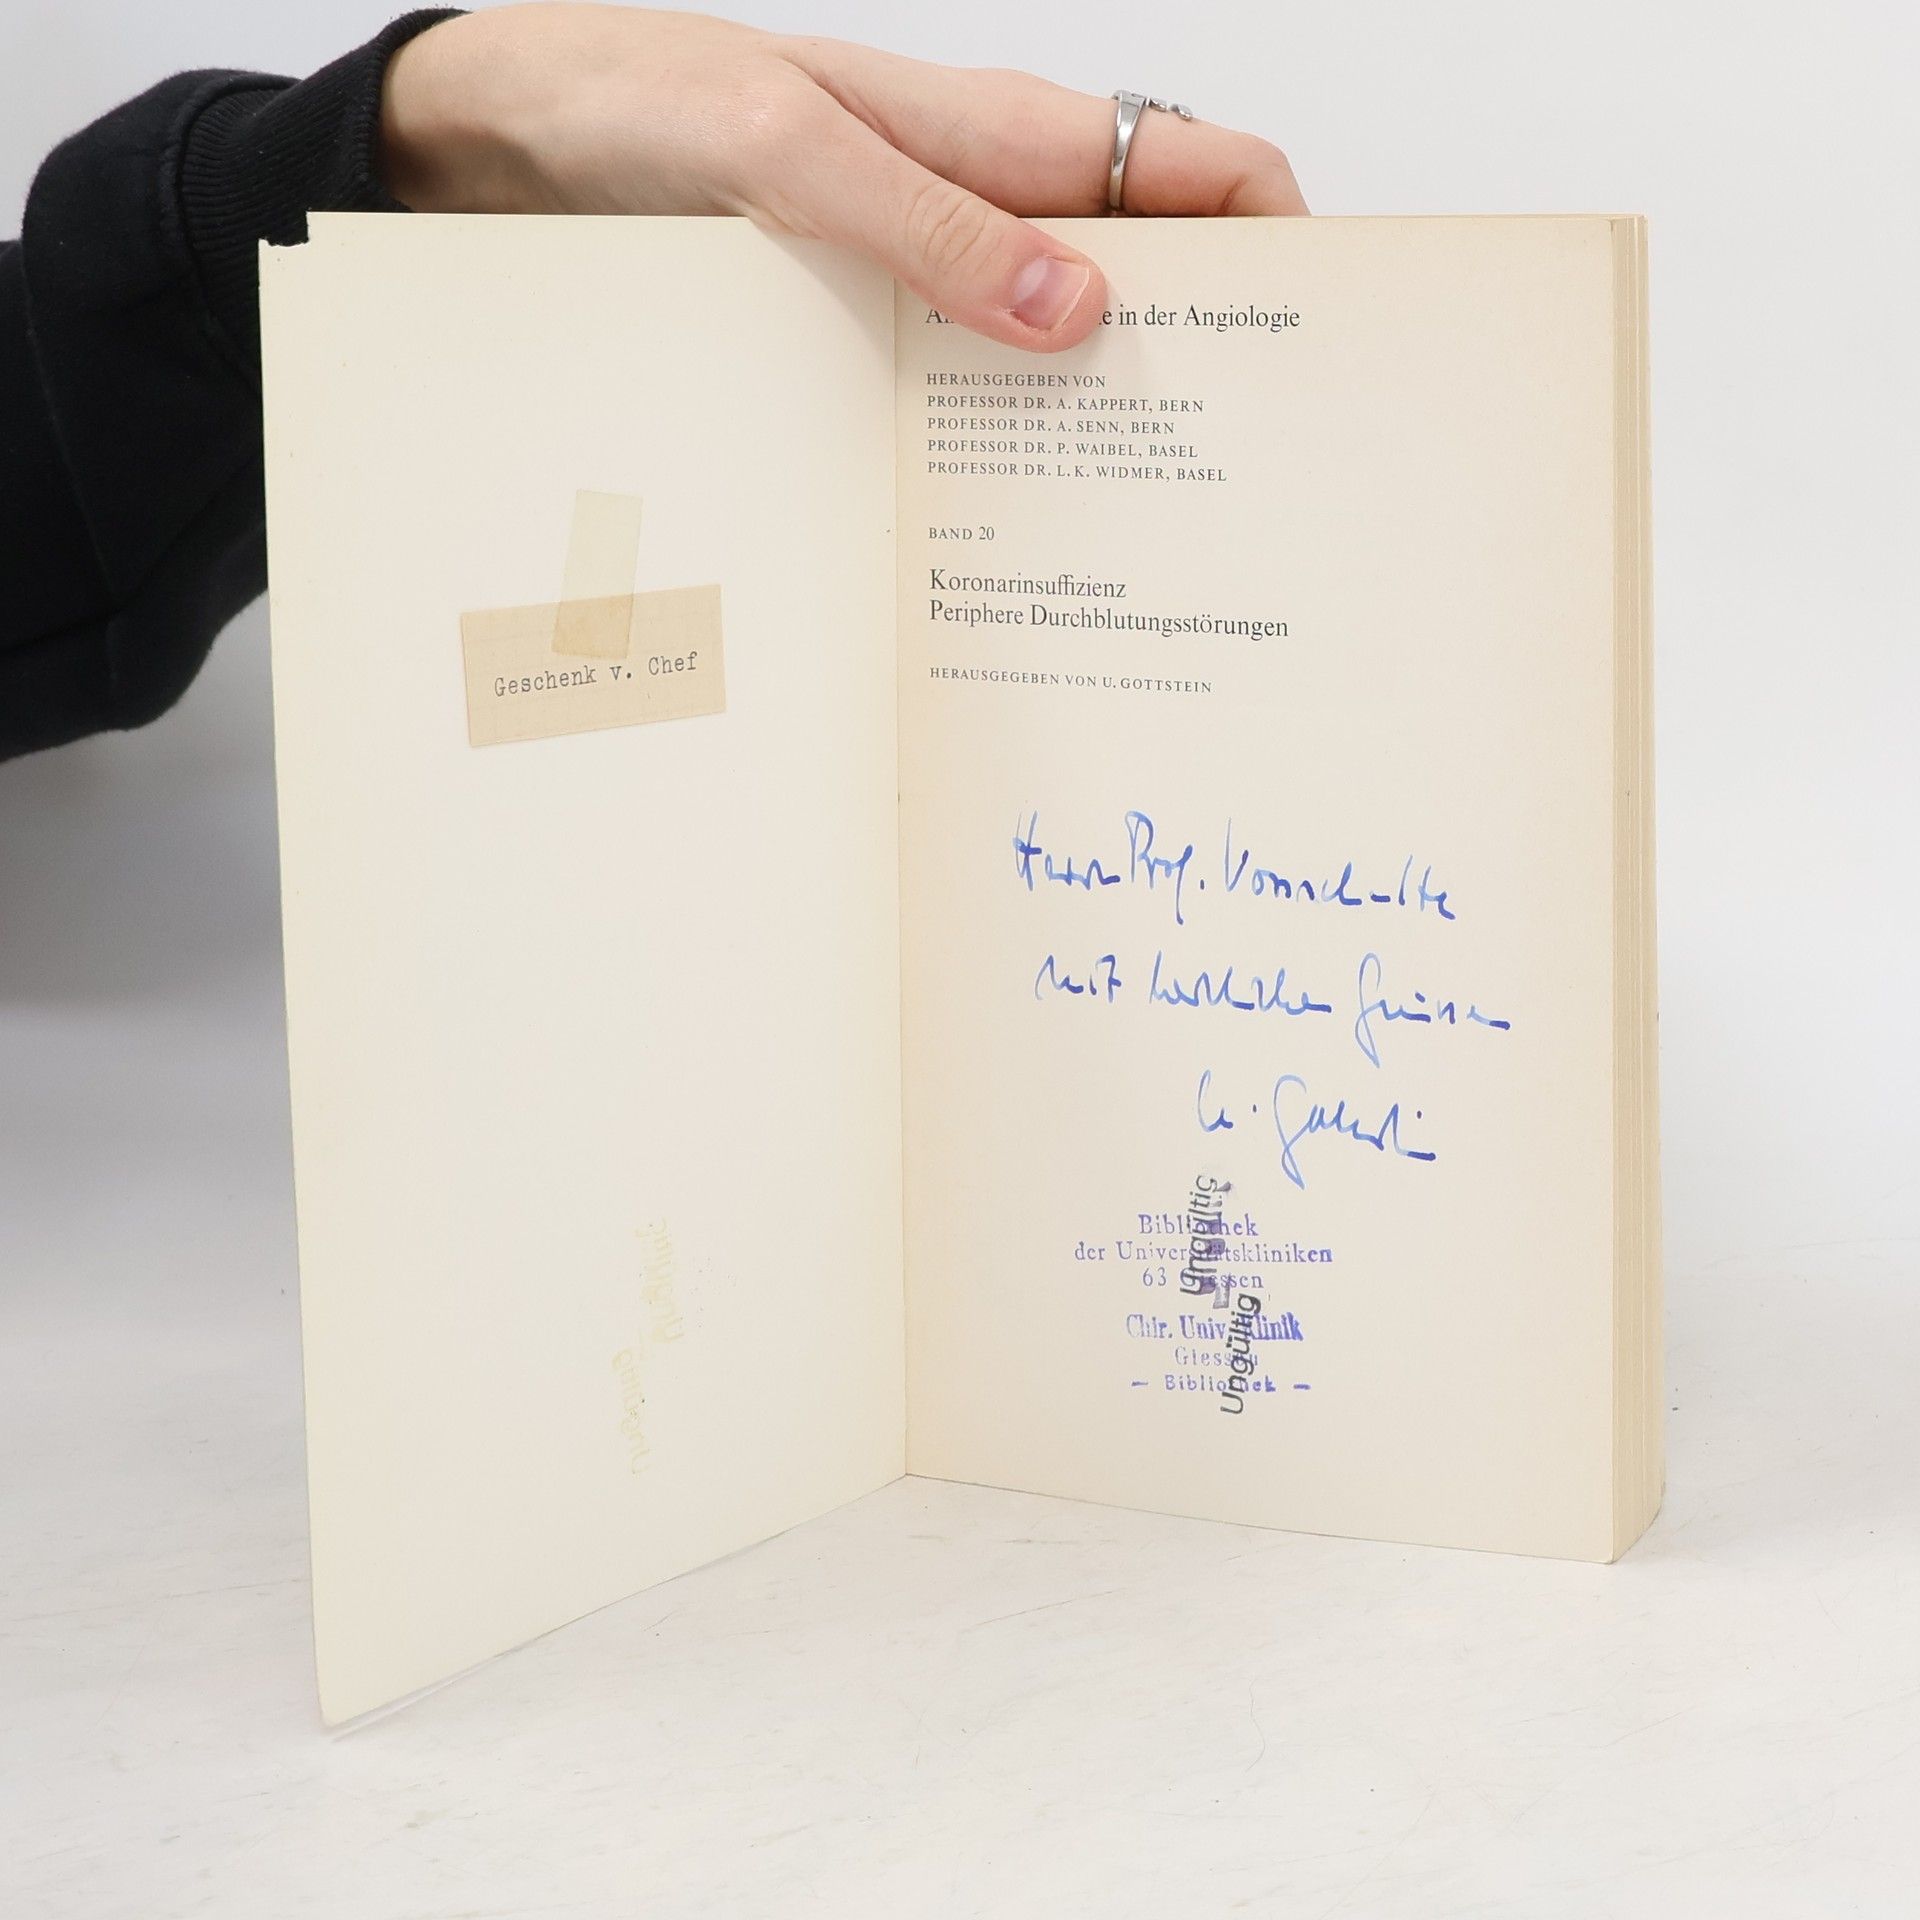 Geschenk v. Chef
in der Angiologie
HERAUSGEGEBEN VON
PROFESSOR DR. A. KAPPERT, BERN
PROFESSOR DR. A. SENN, BERN
PROFESSOR DR. P. WAIBEL, BASEL
PROFESSOR DR. L. K. WIDMER, BASEL
BAND 20
Koronarinsuffizienz
Periphere Durchblutungsstörungen
HERAUSGEGEBEN VON U. GOTTSTEIN
Herrn Prof. Vossschulte
mit herzlichen Grüssen
U. Gottstein
Ungültig
Bibliothek
der Universitätskliniken
63 Giessen
Ungültig
Chir. Univ. Klinik
Giessen
— Bibliothek —